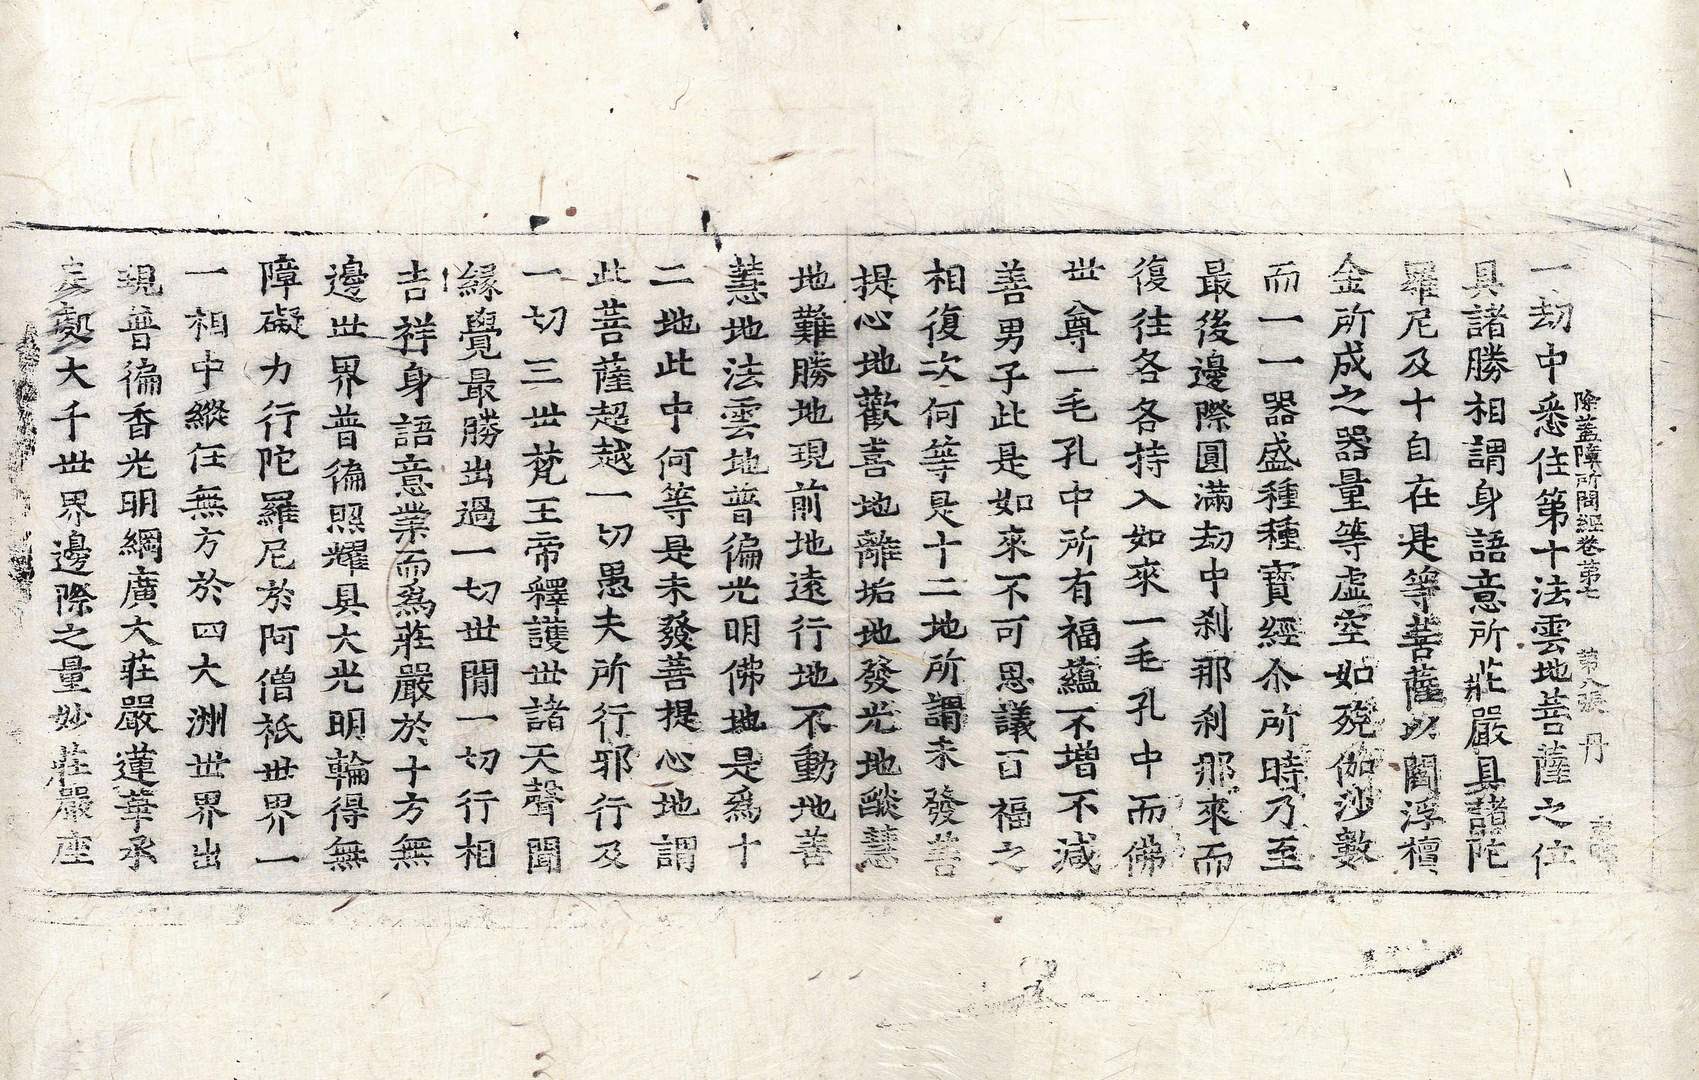 除蓋障所問經卷第七　第八張　丹
一劫中悉住第十法雲地菩薩之位
具諸勝相謂身語意所莊嚴具諸陀
羅尼及十自在是等菩薩以閻浮檀
金所成之器量等虛空如殑伽沙數
而一一器盛種種寶經尒所時乃至
最後邊際圓滿劫中刹那刹那來而
復往各各持入如來一毛孔中而佛
世尊一毛孔中所有福蘊不增不減
善男子此是如來不可思議百福之
相復次何等是十二地所謂未發菩
提心地歡喜地離垢地發光地燄慧
地難勝地現前地遠行地不動地善
慧地法雲地普徧光明佛地是爲十
二地此中何等是未發菩提心地謂
此菩薩超越一切愚夫所行邪行及
一切三世梵王帝釋護世諸天聲聞
緣覺最勝出過一切世間一切行相
吉祥身語意業而爲莊嚴於十方無
邊世界普徧照耀具大光明輪得無
障礙力行陀羅尼於阿僧祇世界一
一相中縱任無方於四大洲世界出
現普徧香光明網廣大莊嚴蓮華承
大千世界邊際之量妙莊嚴座